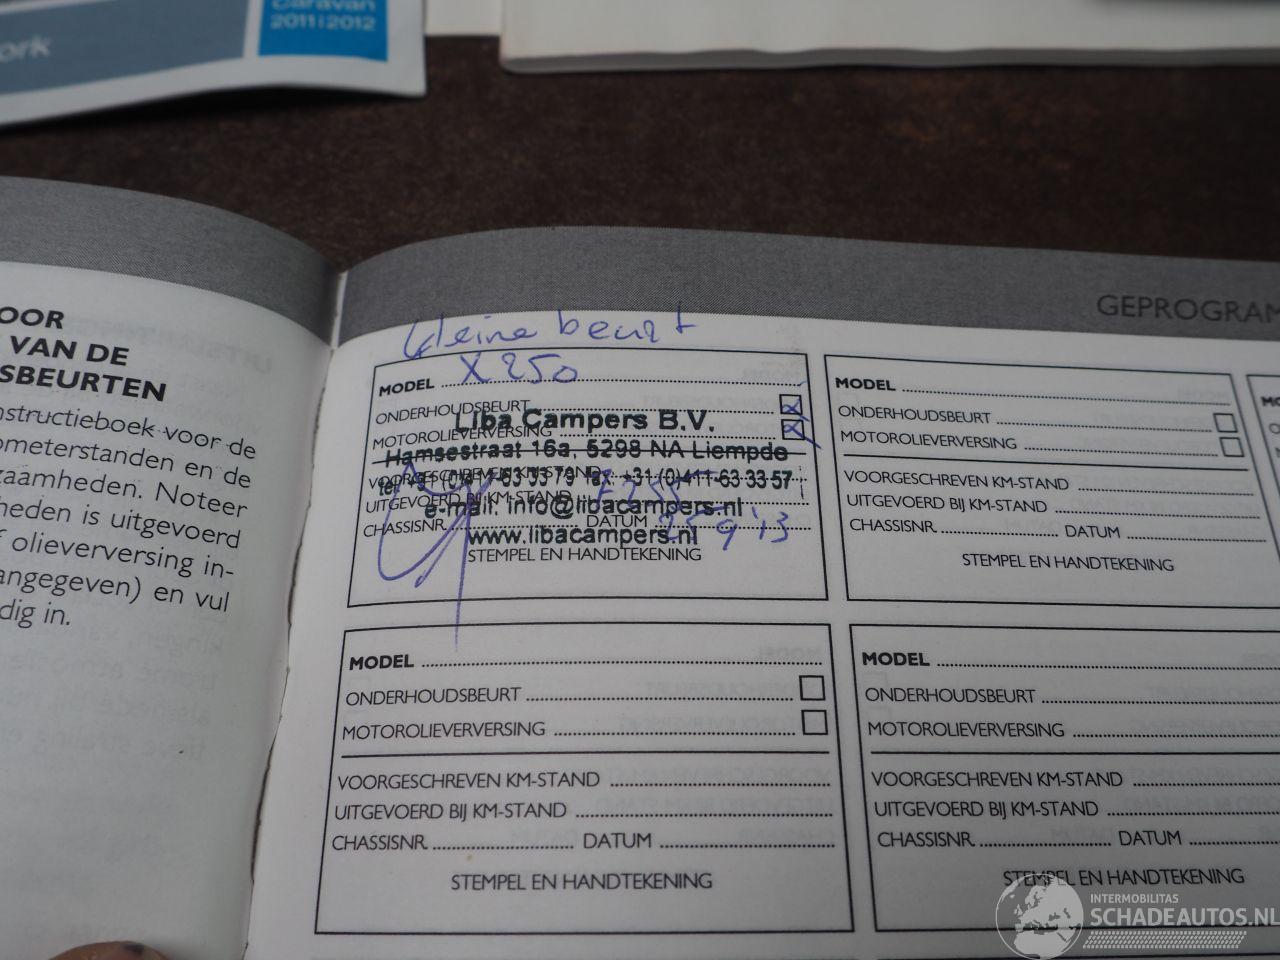 Caravan
2011|2012
ork
OOR
VAN DE
SBEURTEN
nstructieboek voor de
ometerstanden en de
zaamheden. Noteer
heden is uitgevoerd
f olieverversing in-
angegeven) en vul
dig in.
GEPROGRAM
kleine beurt
MODEL X250
ONDERHOUDSBEURT
MOTOROLIEVERVERSING
Liba Campers B.V.
Hamsestraat 16a, 5298 NA Liempde
fax: +31-(0)411-63-33-57
e-mail: info@libacampers.nl
www.libacampers.nl
VOORGESCHREVEN KM-STAND
UITGEVOERD BIJ KM-STAND
CHASSISNR. DATUM 25 9 '13
STEMPEL EN HANDTEKENING
MODEL
ONDERHOUDSBEURT
MOTOROLIEVERVERSING
VOORGESCHREVEN KM-STAND
UITGEVOERD BIJ KM-STAND
CHASSISNR. DATUM
STEMPEL EN HANDTEKENING
MODEL
ONDERHOUDSBEURT
MOTOROLIEVERVERSING
VOORGESCHREVEN KM-STAND
UITGEVOERD BIJ KM-STAND
CHASSISNR. DATUM
STEMPEL EN HANDTEKENING
MODEL
ONDERHOUDSBEURT
MOTOROLIEVERVERSING
VOORGESCHREVEN KM-STAND
UITGEVOERD BIJ KM-STAND
CHASSISNR. DATUM
STEMPEL EN HANDTEKENING
INTERMOBILITAS
SCHADEAUTOS.NL